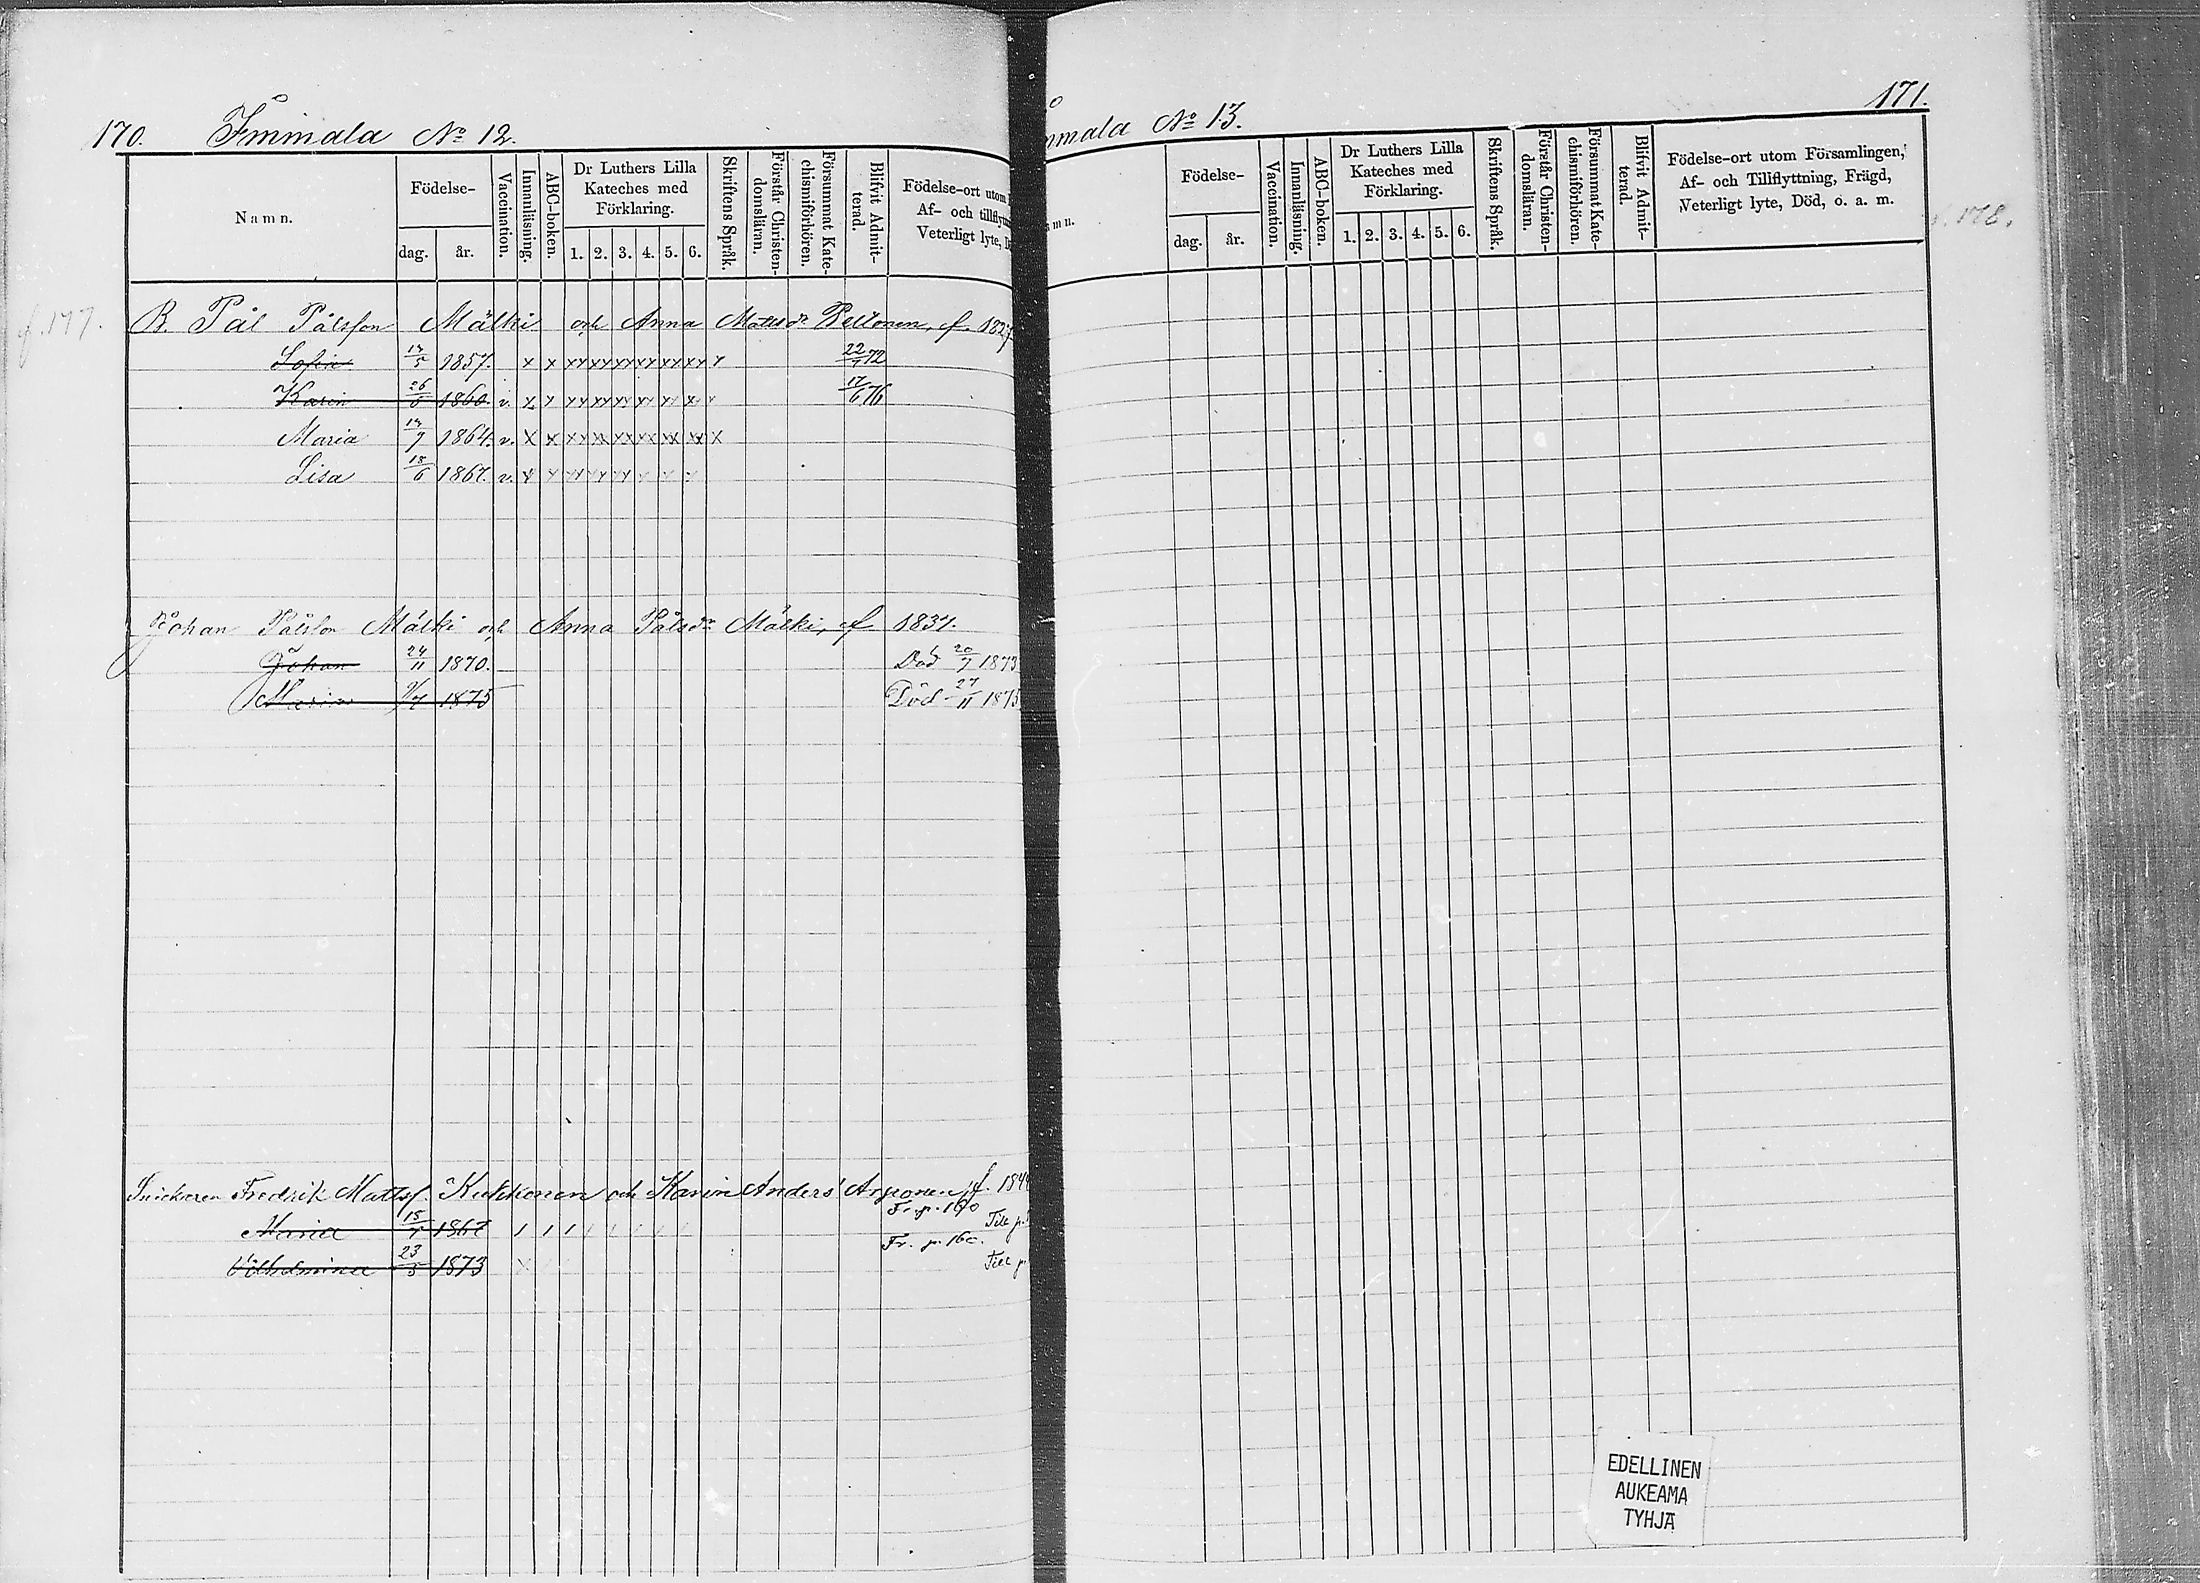 170. Immala No 12.
Namn.
Födelse-
dag.
år.
Vaccination.
Innanläsning.
ABC-boken.
Dr Luthers Lilla
Kateches med
Förklaring.
1. 2. 3. 4. 5. 6.
Skriftens Språk.
Förstår Christen-
domsläran.
Försummat Kate-
chismiförhören.
Blifvit Admit-
terad.
Födelse-ort utom
Af- och tillflytt
Veterligt lyte, D
f. 177.
B. Pål Pålsson Mälki och Anna Mattsdr Peltonen, f. 1827
Sofia 1857. x x xx xx xx xx xx xx x 22/9 72
Karin 26/6 1860. v. x x xx xx xx x xx x 17/6 76
Maria 1864. v. x x xx xx xx xx xx xx x
Lisa 18/6 1867. v.
Johan Pålsson Mälki och Anna Pålsdr Mälki, f. 1837.
Johan 24/11 1870. Död 20/7 1873
Maria 1875 Död 27/11 1875
Snickaren Fredrik Mattsf. Kukkonen och Karin Anders' Arponen, f. 184
Fr. p. 160
Maria 15/7 1867 Till p.
Fr. p. 160.
Vilhelmina 23/5 1873 Till p.
171.
mmala No 13.
mn.
Födelse-
dag.
år.
Vaccination.
Innanläsning.
ABC-boken.
Dr Luthers Lilla
Kateches med
Förklaring.
1. 2. 3. 4. 5. 6.
Skriftens Språk.
Förstår Christen-
domsläran.
Försummat Kate-
chismiförhören.
Blifvit Admit-
terad.
Födelse-ort utom Församlingen,
Af- och Tillflyttning, Frägd,
Veterligt lyte, Död, o. a. m.
f. 178.
EDELLINEN
AUKEAMA
TYHJÄ